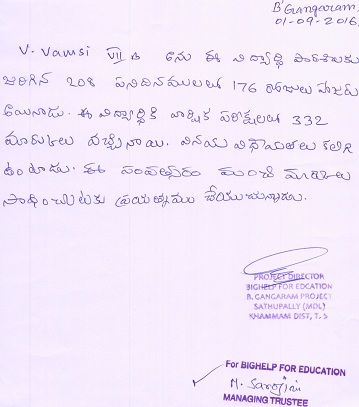 B'Gangaram,
01-09-2016.
V. Vamsi VII వ తను ఈ విద్యార్థి పాఠశాలకు
జరిగిన 208 పనిదినములలో 176 రోజులు హాజరు
అయినాడు. ఈ విద్యార్థికి వార్షిక పరీక్షలలో 332
మార్కులు వచ్చినాయి. వినయ విధేయతలు కలిగి
ఉంటాడు. ఈ సంవత్సరం మంచి మార్కులు
సాధించుటకు ప్రయత్నము చేయుచున్నాడు.
PROJECT DIRECTOR
BIGHELP FOR EDCATION
B. GANGARAM PROJECT
SATHUPALLY (MDL)
KHAMMAM DIST, T.S
For BIGHELP FOR EDUCATION
M. Sarojini
MANAGING TRUSTEE